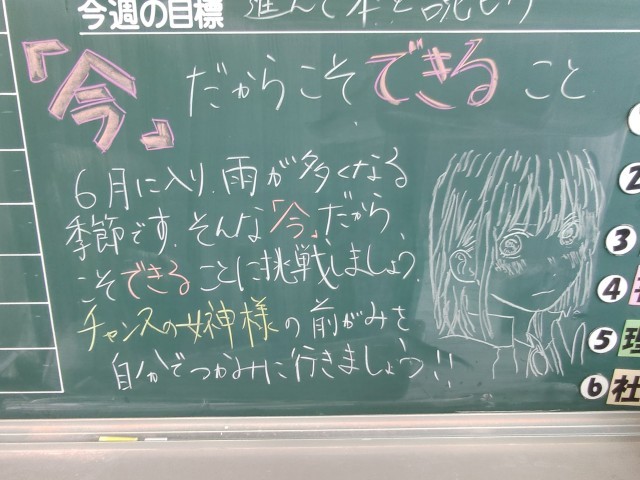 今週の目標
進んで本を読もう
『今』だからこそできること
6月に入り、雨が多くなる
季節です。そんな「今」だから
こそできることに挑戦しましょう。
チャンスの女神様の前がみを
自分でつかみに行きましょう!!
2
3
4
5 理
6 社